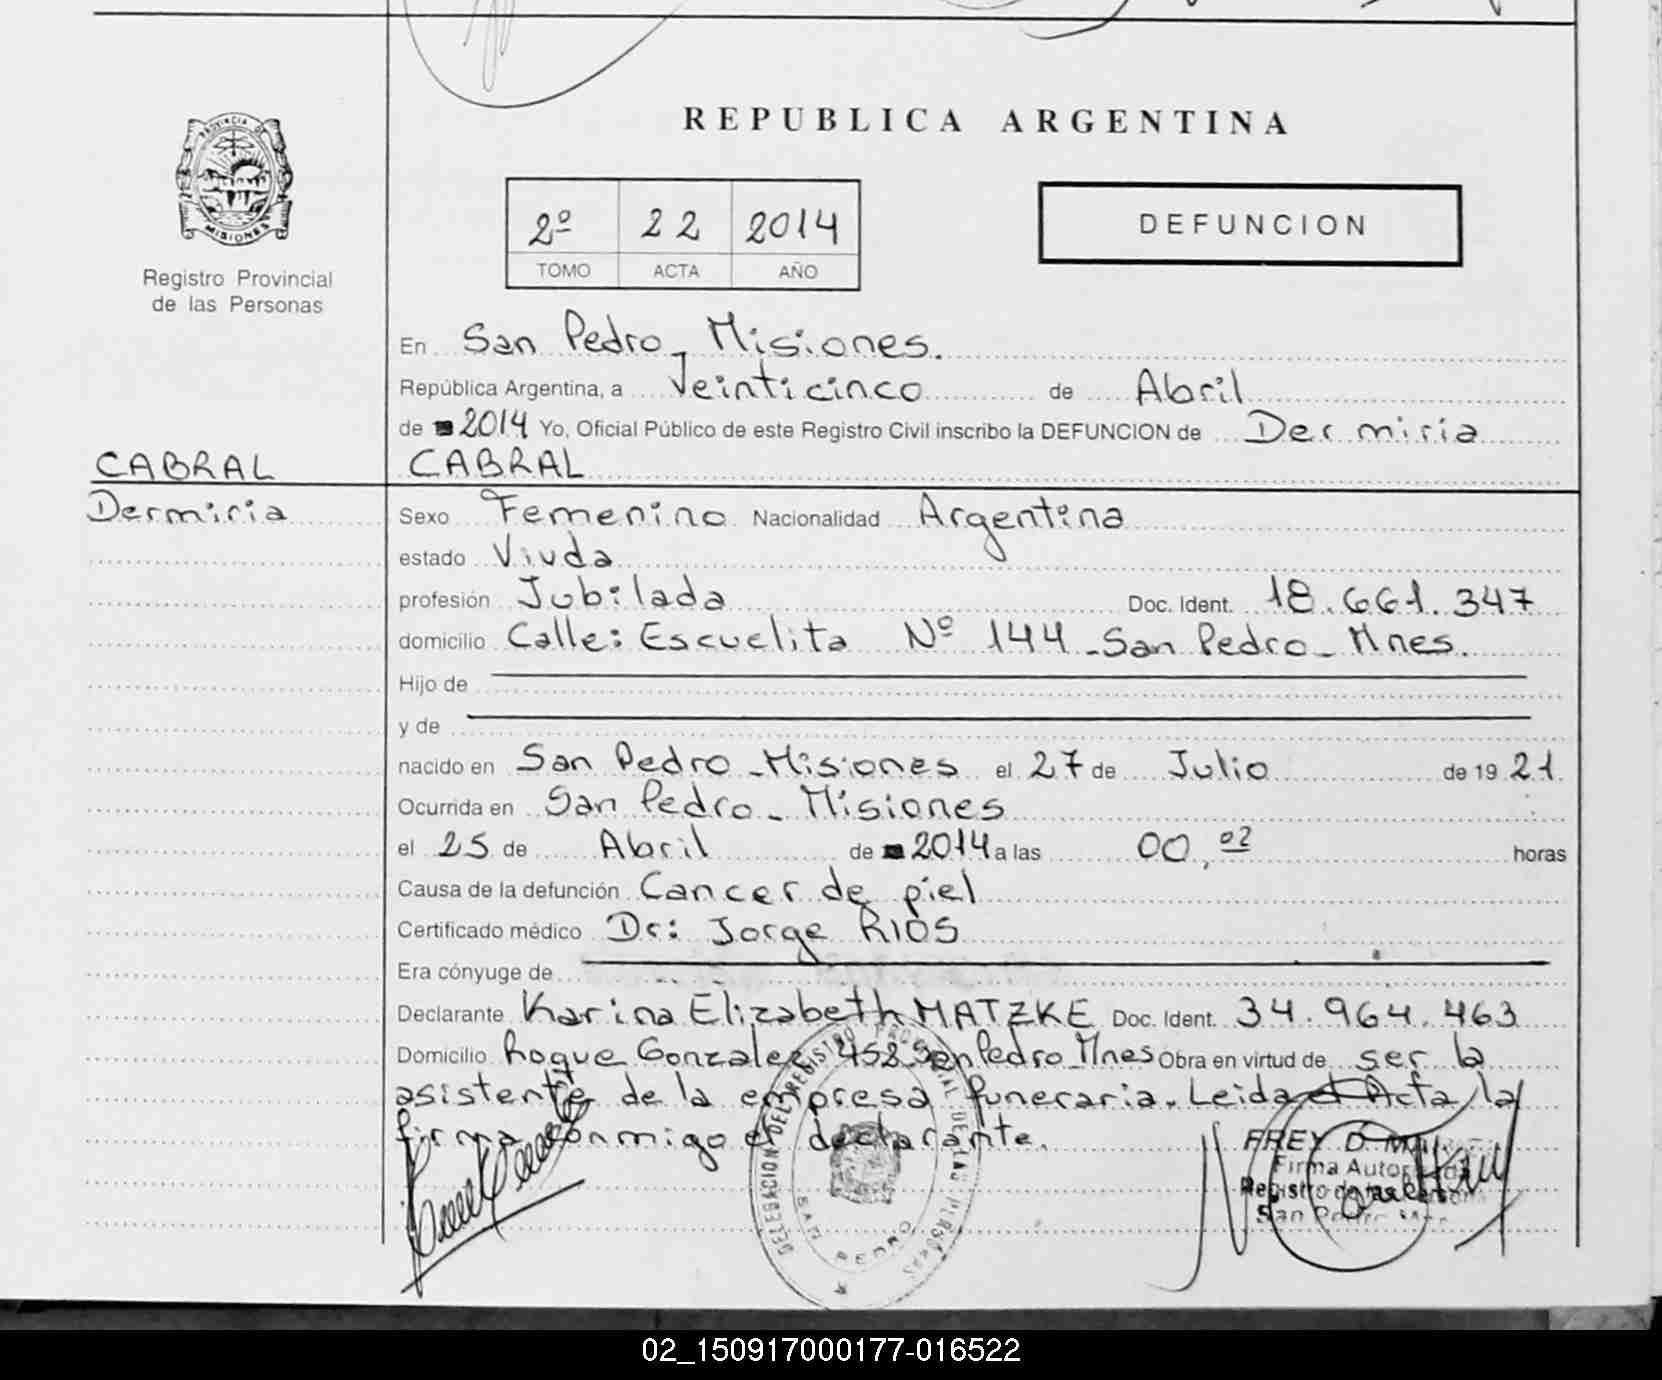 REPUBLICA ARGENTINA
PROVINCIA DE
MISIONES
Registro Provincial
de las Personas
2º 22 2014
TOMO ACTA AÑO
DEFUNCION
En San Pedro - Misiones.
República Argentina, a Veinticinco de Abril
de 2014 Yo, Oficial Público de este Registro Civil inscribo la DEFUNCION de Dermiria
CABRAL CABRAL
Dermiria Sexo Femenino Nacionalidad Argentina
estado Viuda
profesión Jubilada Doc. Ident. 18.661.347
domicilio Calle: Escuelita Nº 144 - San Pedro - Mnes.
Hijo de
y de
nacido en San Pedro - Misiones el 27 de Julio de 19 21.
Ocurrida en San Pedro - Misiones
el 25 de Abril de 2014 a las 00,02 horas
Causa de la defunción Cancer de piel
Certificado médico Dr: Jorge RIOS
Era cónyuge de
Declarante Karina Elizabeth MATZKE Doc. Ident. 34.964.463
Domicilio Roque Gonzalez 458 San Pedro Mnes Obra en virtud de ser la
asistente de la empresa funeraria. Leida el Acta la
firma conmigo el declarante.
DELEGACION DEL REGISTRO PROVINCIAL DE LAS PERSONAS
SAN PEDRO
FREY D.
Firma Autorizada
Registro de las Personas
San Pedro
02_150917000177-016522